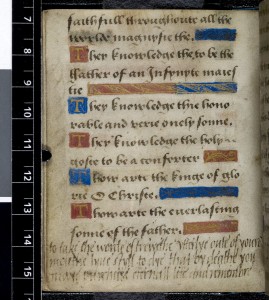 7
8
9
10
11
12
13
14
15
faithfull throughoute all the
worlde magnyfie the.
They knowledge the, to be the
ffather of an Infynyte maies
tie
They knowledge thie hono
rable and verie onely sonne.
They knowledge the holy
goste to be a conforter
Thow arte the kinge of glo
rie O Christe.
Thow arte the everlasting
sonne of the father.
to take the worde of trwythe vtterlye oute of your